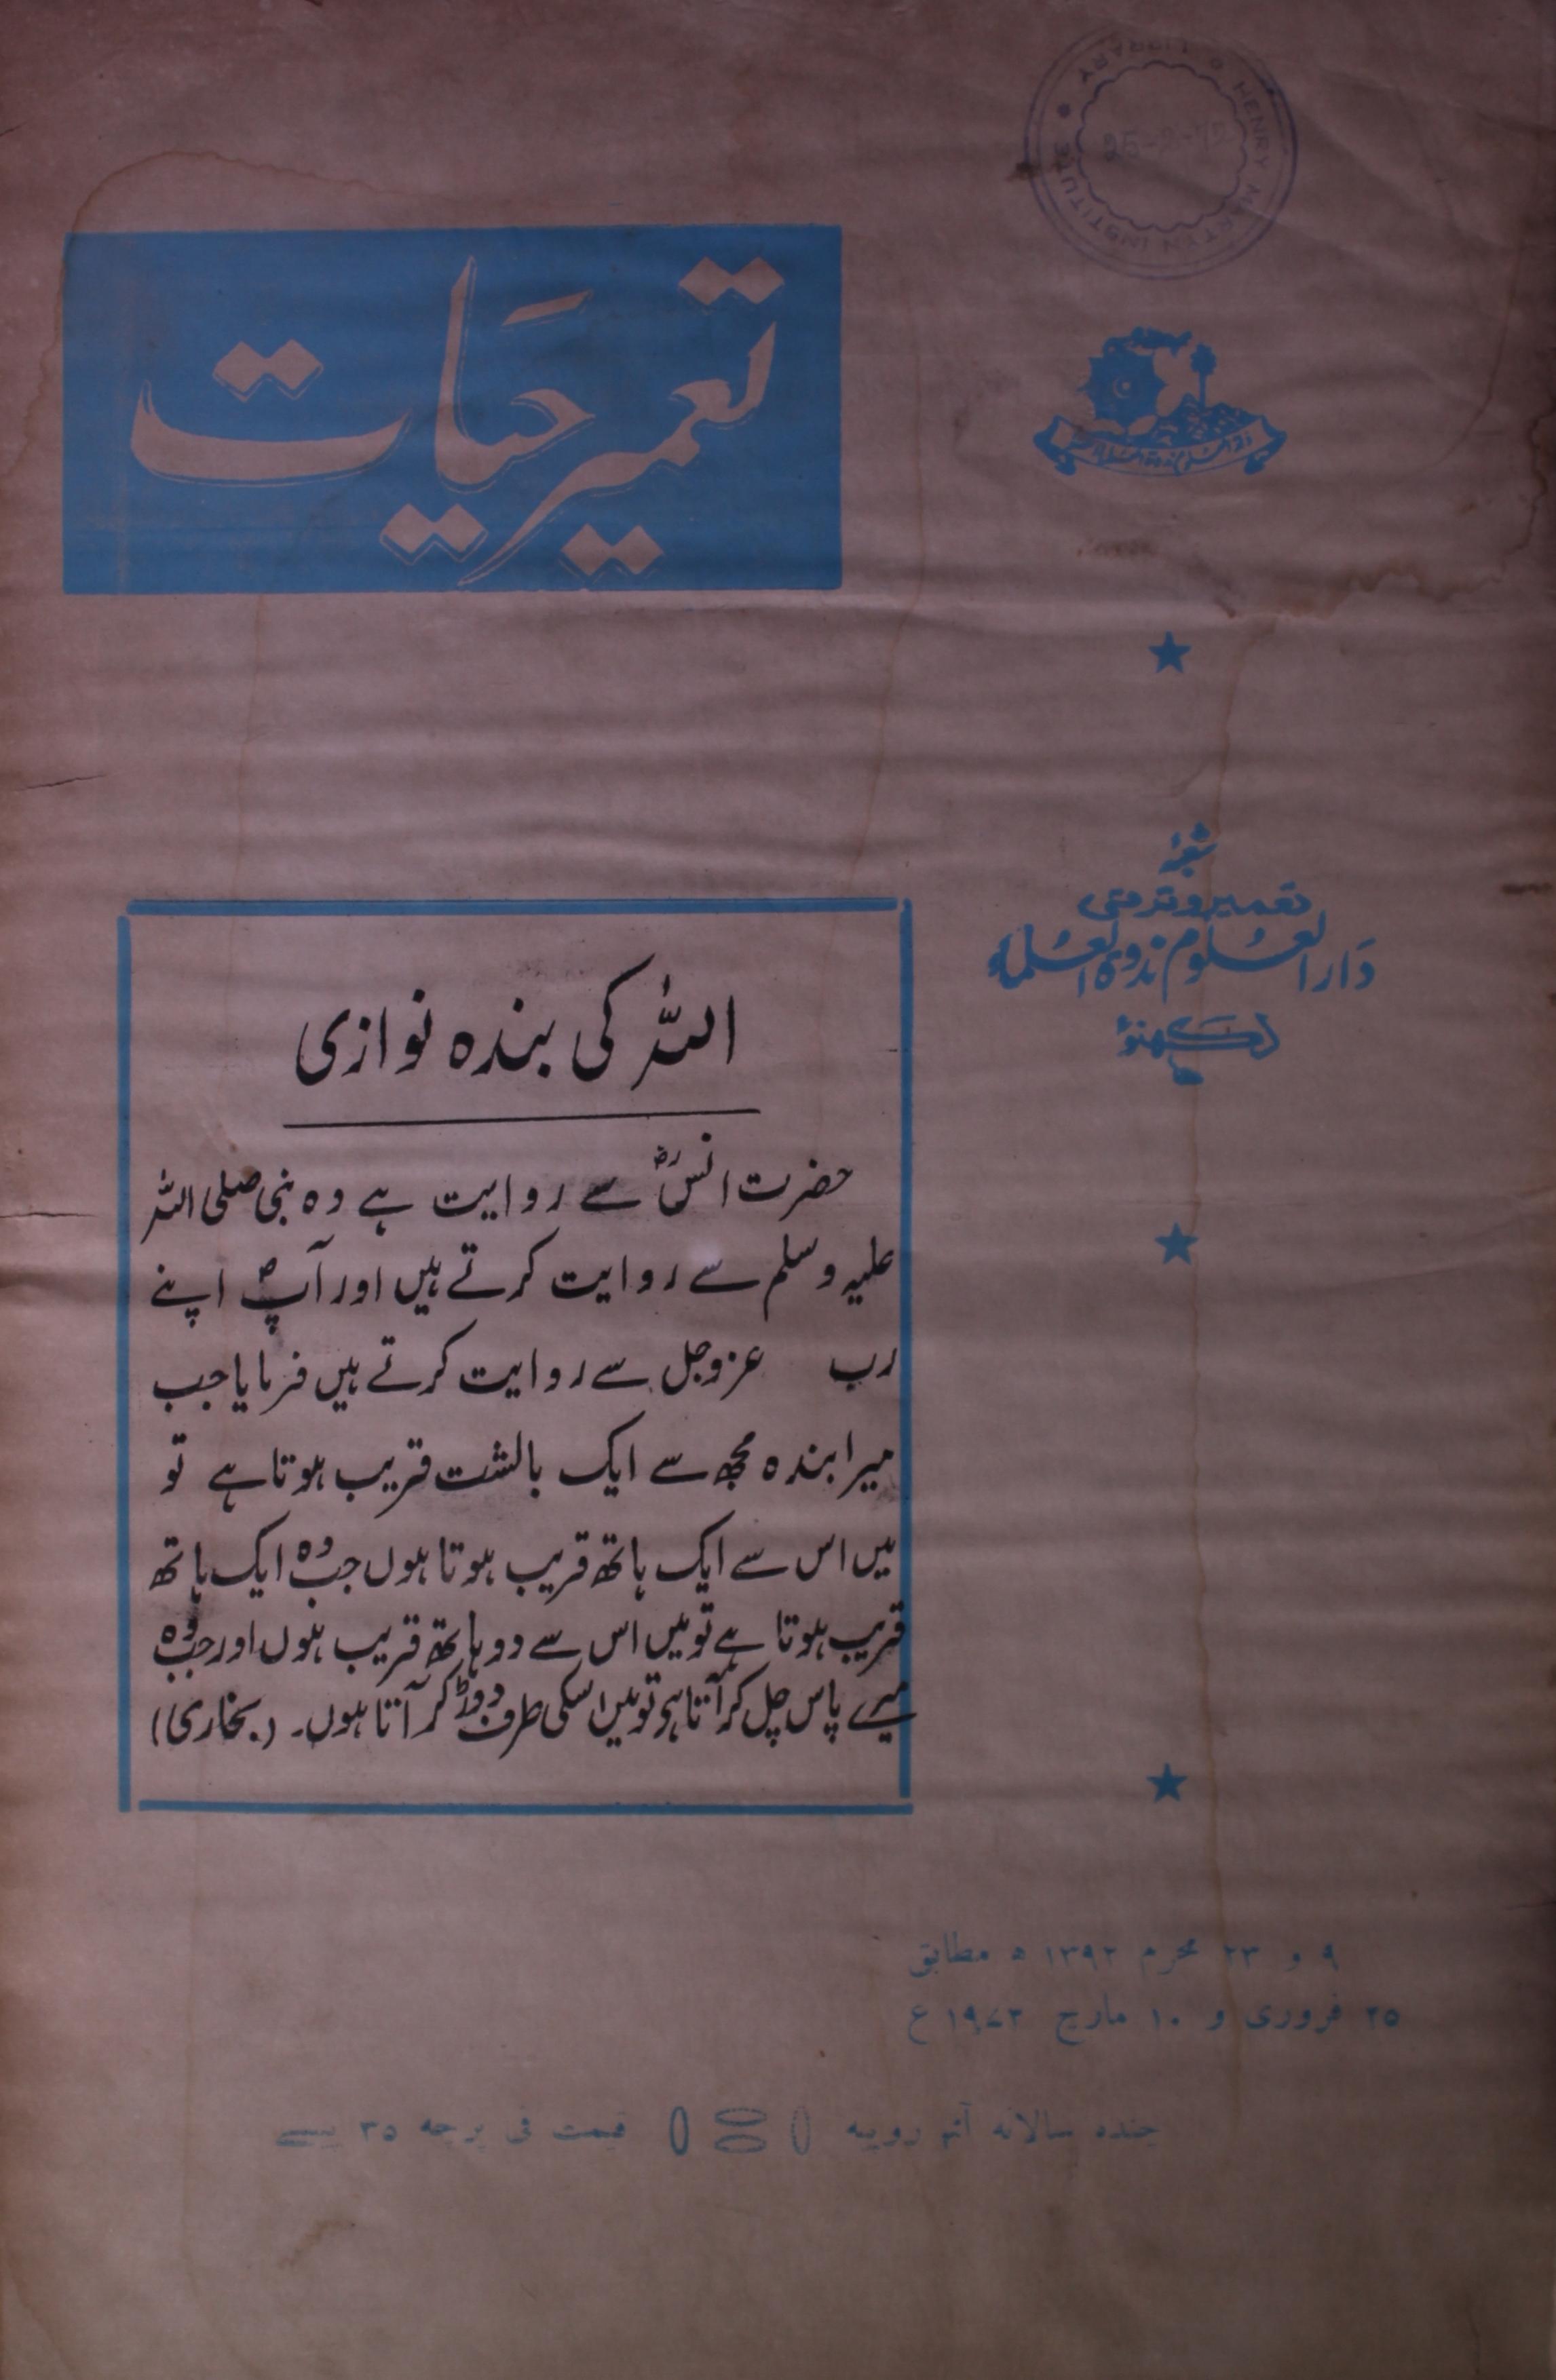 HENRY MARTYN INSTITUTE LIBRARY
25-2-72
تعمیر حیات
شعبہ
تعمیر و ترقی
دار العلوم ندوۃ العلماء
لکھنؤ
اللہ کی بندہ نوازی
حضرت انسؓ سے روایت ہے وہ نبی صلی اللہ
علیہ وسلم سے روایت کرتے ہیں اور آپؐ اپنے
رب عزوجل سے روایت کرتے ہیں فرمایا جب
میرا بندہ مجھ سے ایک بالشت قریب ہوتا ہے تو
میں اس سے ایک ہاتھ قریب ہوتا ہوں جب وہ ایک ہاتھ
قریب ہوتا ہے تو میں اس سے دو ہاتھ قریب ہوں اور جب وہ
میرے پاس چل کر آتا ہے تو میں اسکی طرف دوڑ کر آتا ہوں۔ (بخاری)
۹ و ۲۳ محرم ۱۳۹۲ ھ مطابق
۲۵ فروری و ۱۰ مارچ ۱۹۷۲ ع
چندہ سالانہ آٹھ روپیہ قیمت فی پرچہ ۳۵ پیسے